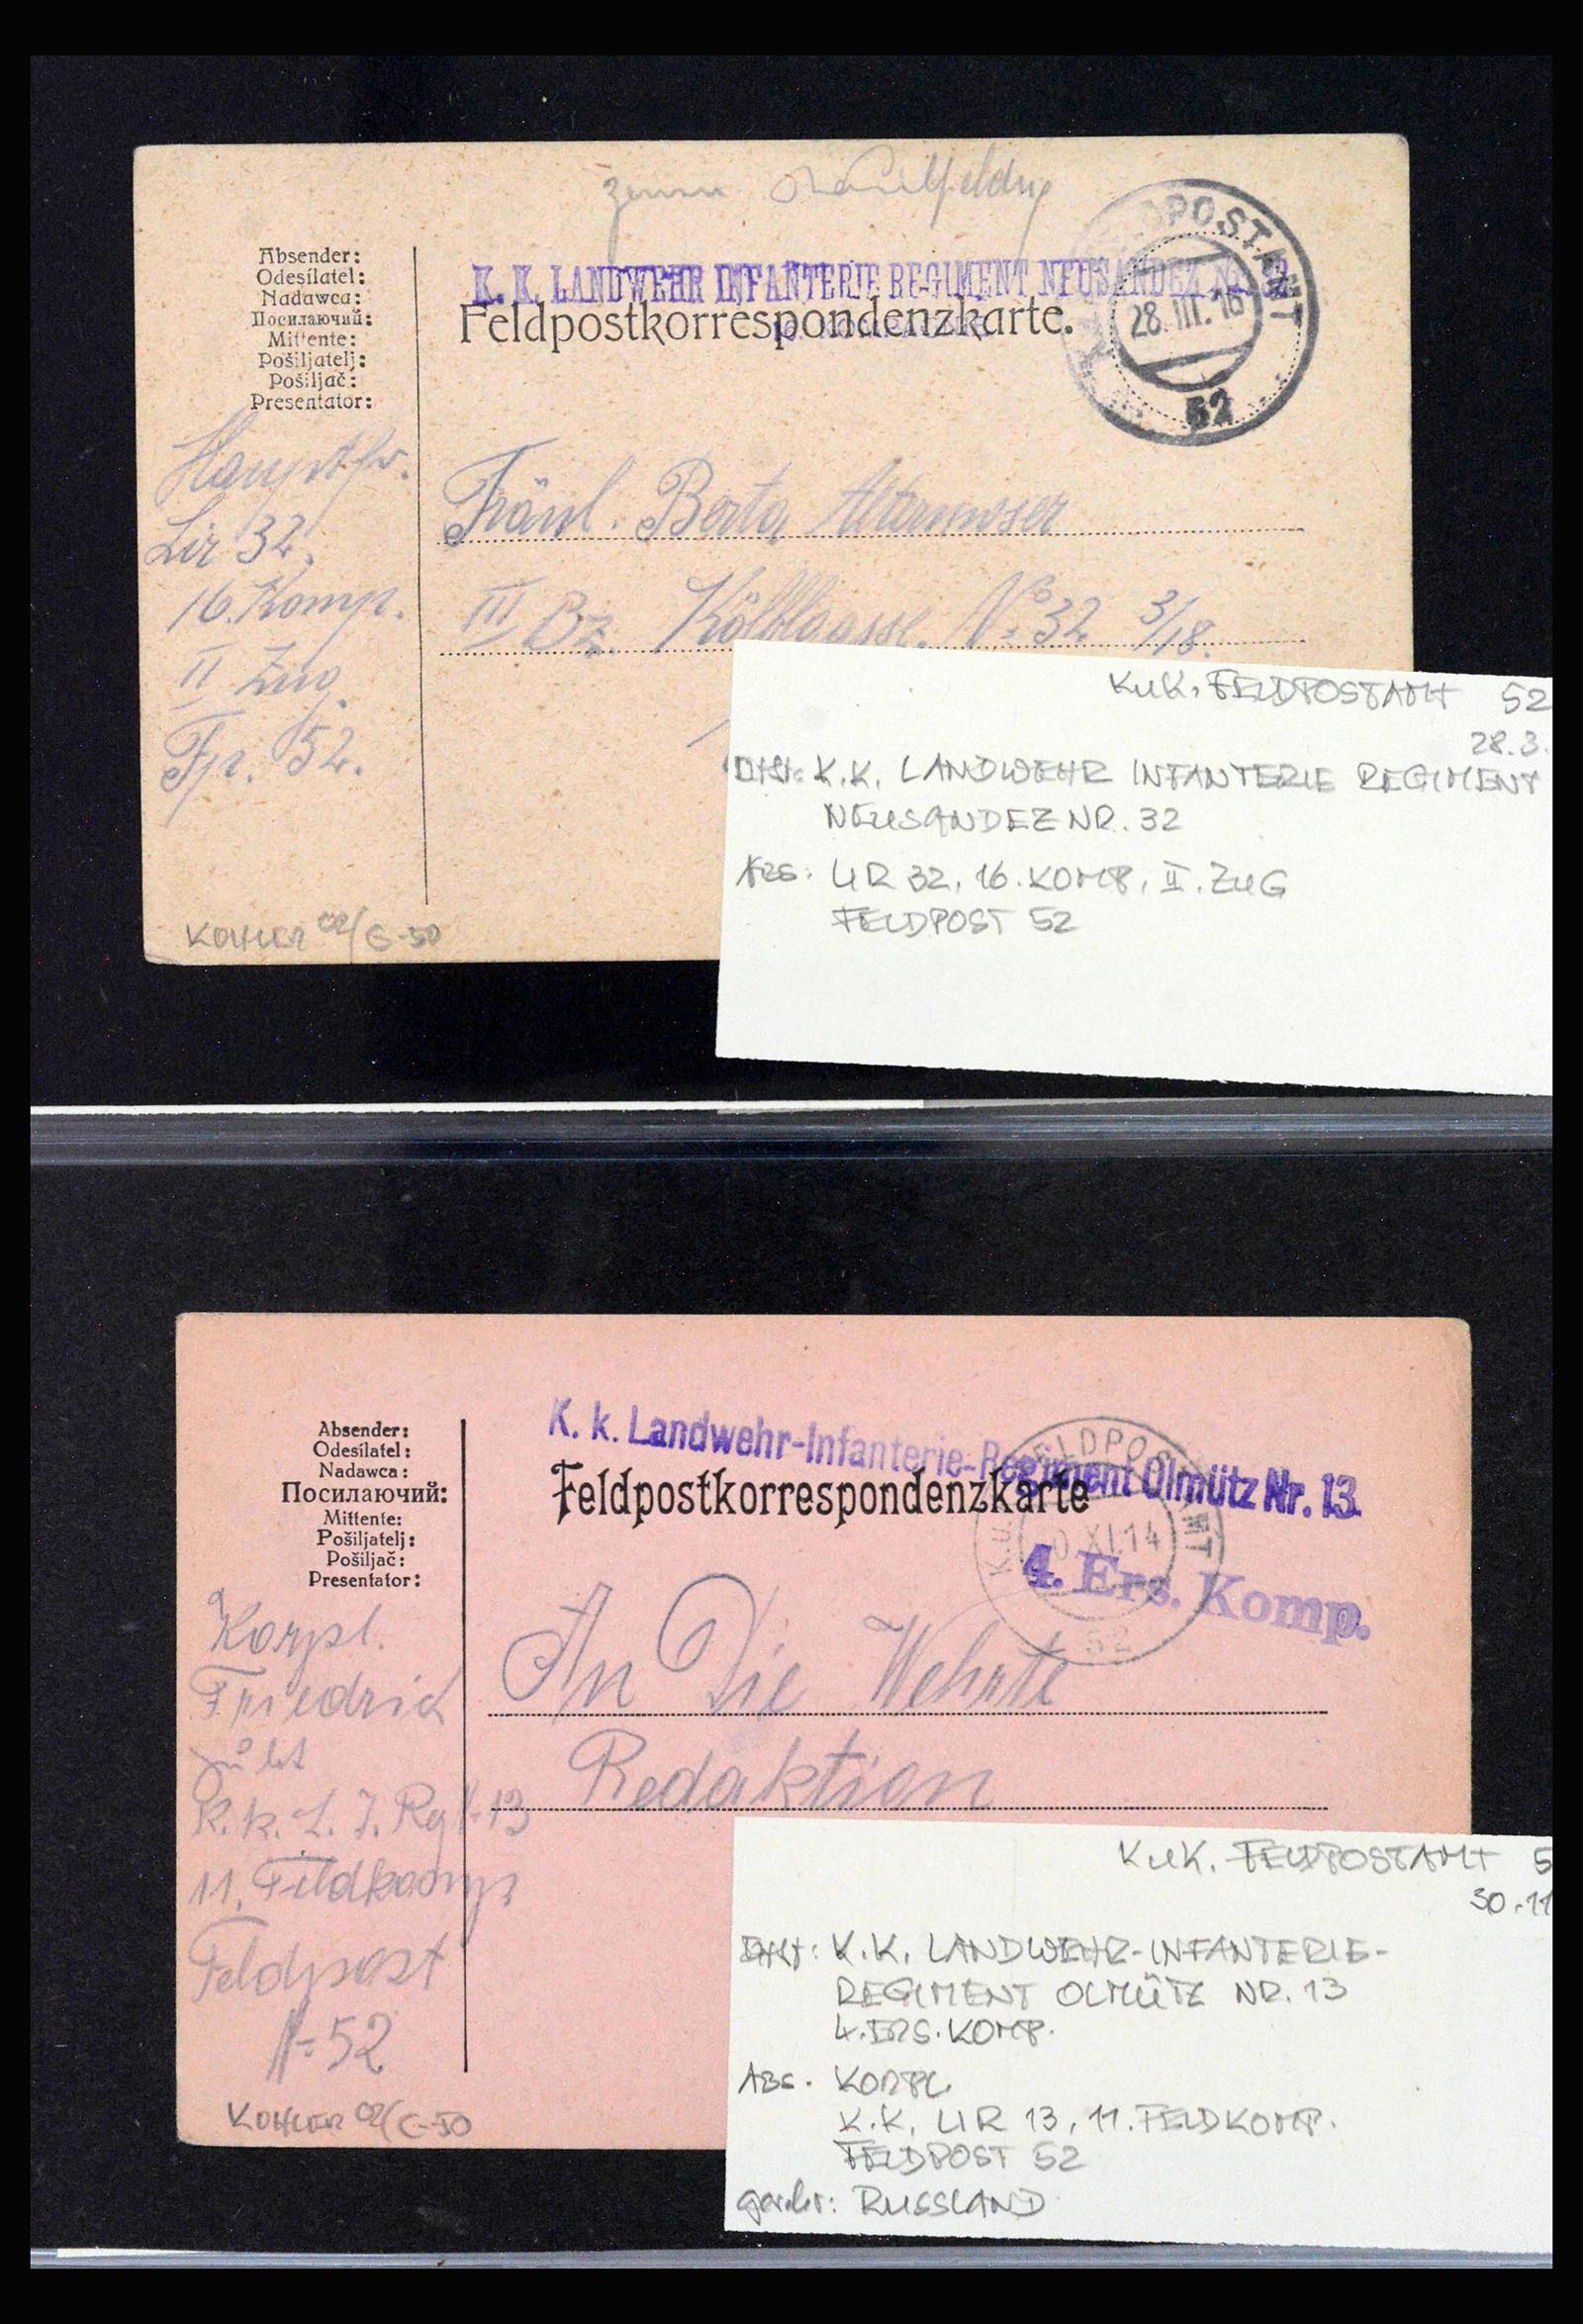 Absender:
Odesílatel:
Nadawca:
Посилаючий:
Mittente:
Pošiljatelj:
Pošiljač:
Presentator:
K. K. LANDWEHR INFANTERIE REGIMENT NEUSANDEZ Nr. 32
Feldpostkorrespondenzkarte.
FELDPOSTAMT
28. III. 16
52
Lir 32.
16. Komp.
II Zug.
Fp. 52.
Fräul. Berta
III Bz. Kölblgasse. No 32 3/18.
KOHLER 02/G-50
KuK. FELDPOSTAMT 52
28.3.
K.K. LANDWEHR INFANTERIE REGIMENT
NEUSANDEZ NR. 32
ABS: LIR 32, 16. KOMP, II. ZUG
FELDPOST 52
Absender:
Odesílatel:
Nadawca:
Посилаючий:
Mittente:
Pošiljatelj:
Pošiljač:
Presentator:
K. k. Landwehr-Infanterie-Regiment Olmütz Nr. 13.
Feldpostkorrespondenzkarte
K.u.K. FELDPOSTAMT
0 XI.14
52
4. Ers. Komp.
Korpl.
Friedrich
K. k. L. I. Rgt. 13
11. Feldkomp
Feldpost
52
An Die
Redaktion
KOHLER 02/G-50
KuK. FELDPOSTAMT 5
30.11
K.K. LANDWEHR-INFANTERIE-
REGIMENT OLMÜTZ NR. 13
4. ERS. KOMP.
ABS. KORPL.
K.K. LIR 13, 11. FELDKOMP.
FELDPOST 52
RUSSLAND